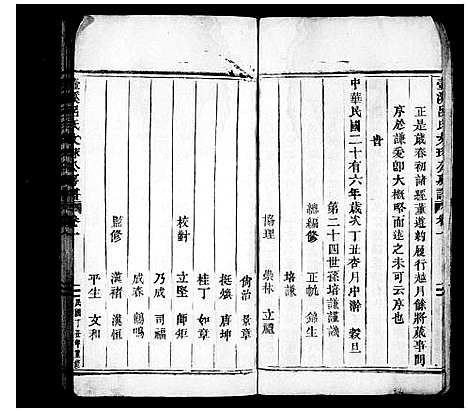 正是歲春初諸經董道約履行越月餘將蕆事問
序於謙爰卽大概略而述之未可云序也
旹
中華民國二十有六年歲次丁丑杏月中澣 穀旦
第二十四世孫培謙謹識
總編修 正帆 錦生
培謙
協理 榮林 立麗
尙治 景章
挺強 唐坤
桂丁 如章
校對 立堅 師矩
乃成 司福
咸春 鶴鳴
監修 漢褚 漢恒
平生 文和
民國丁丑年重修